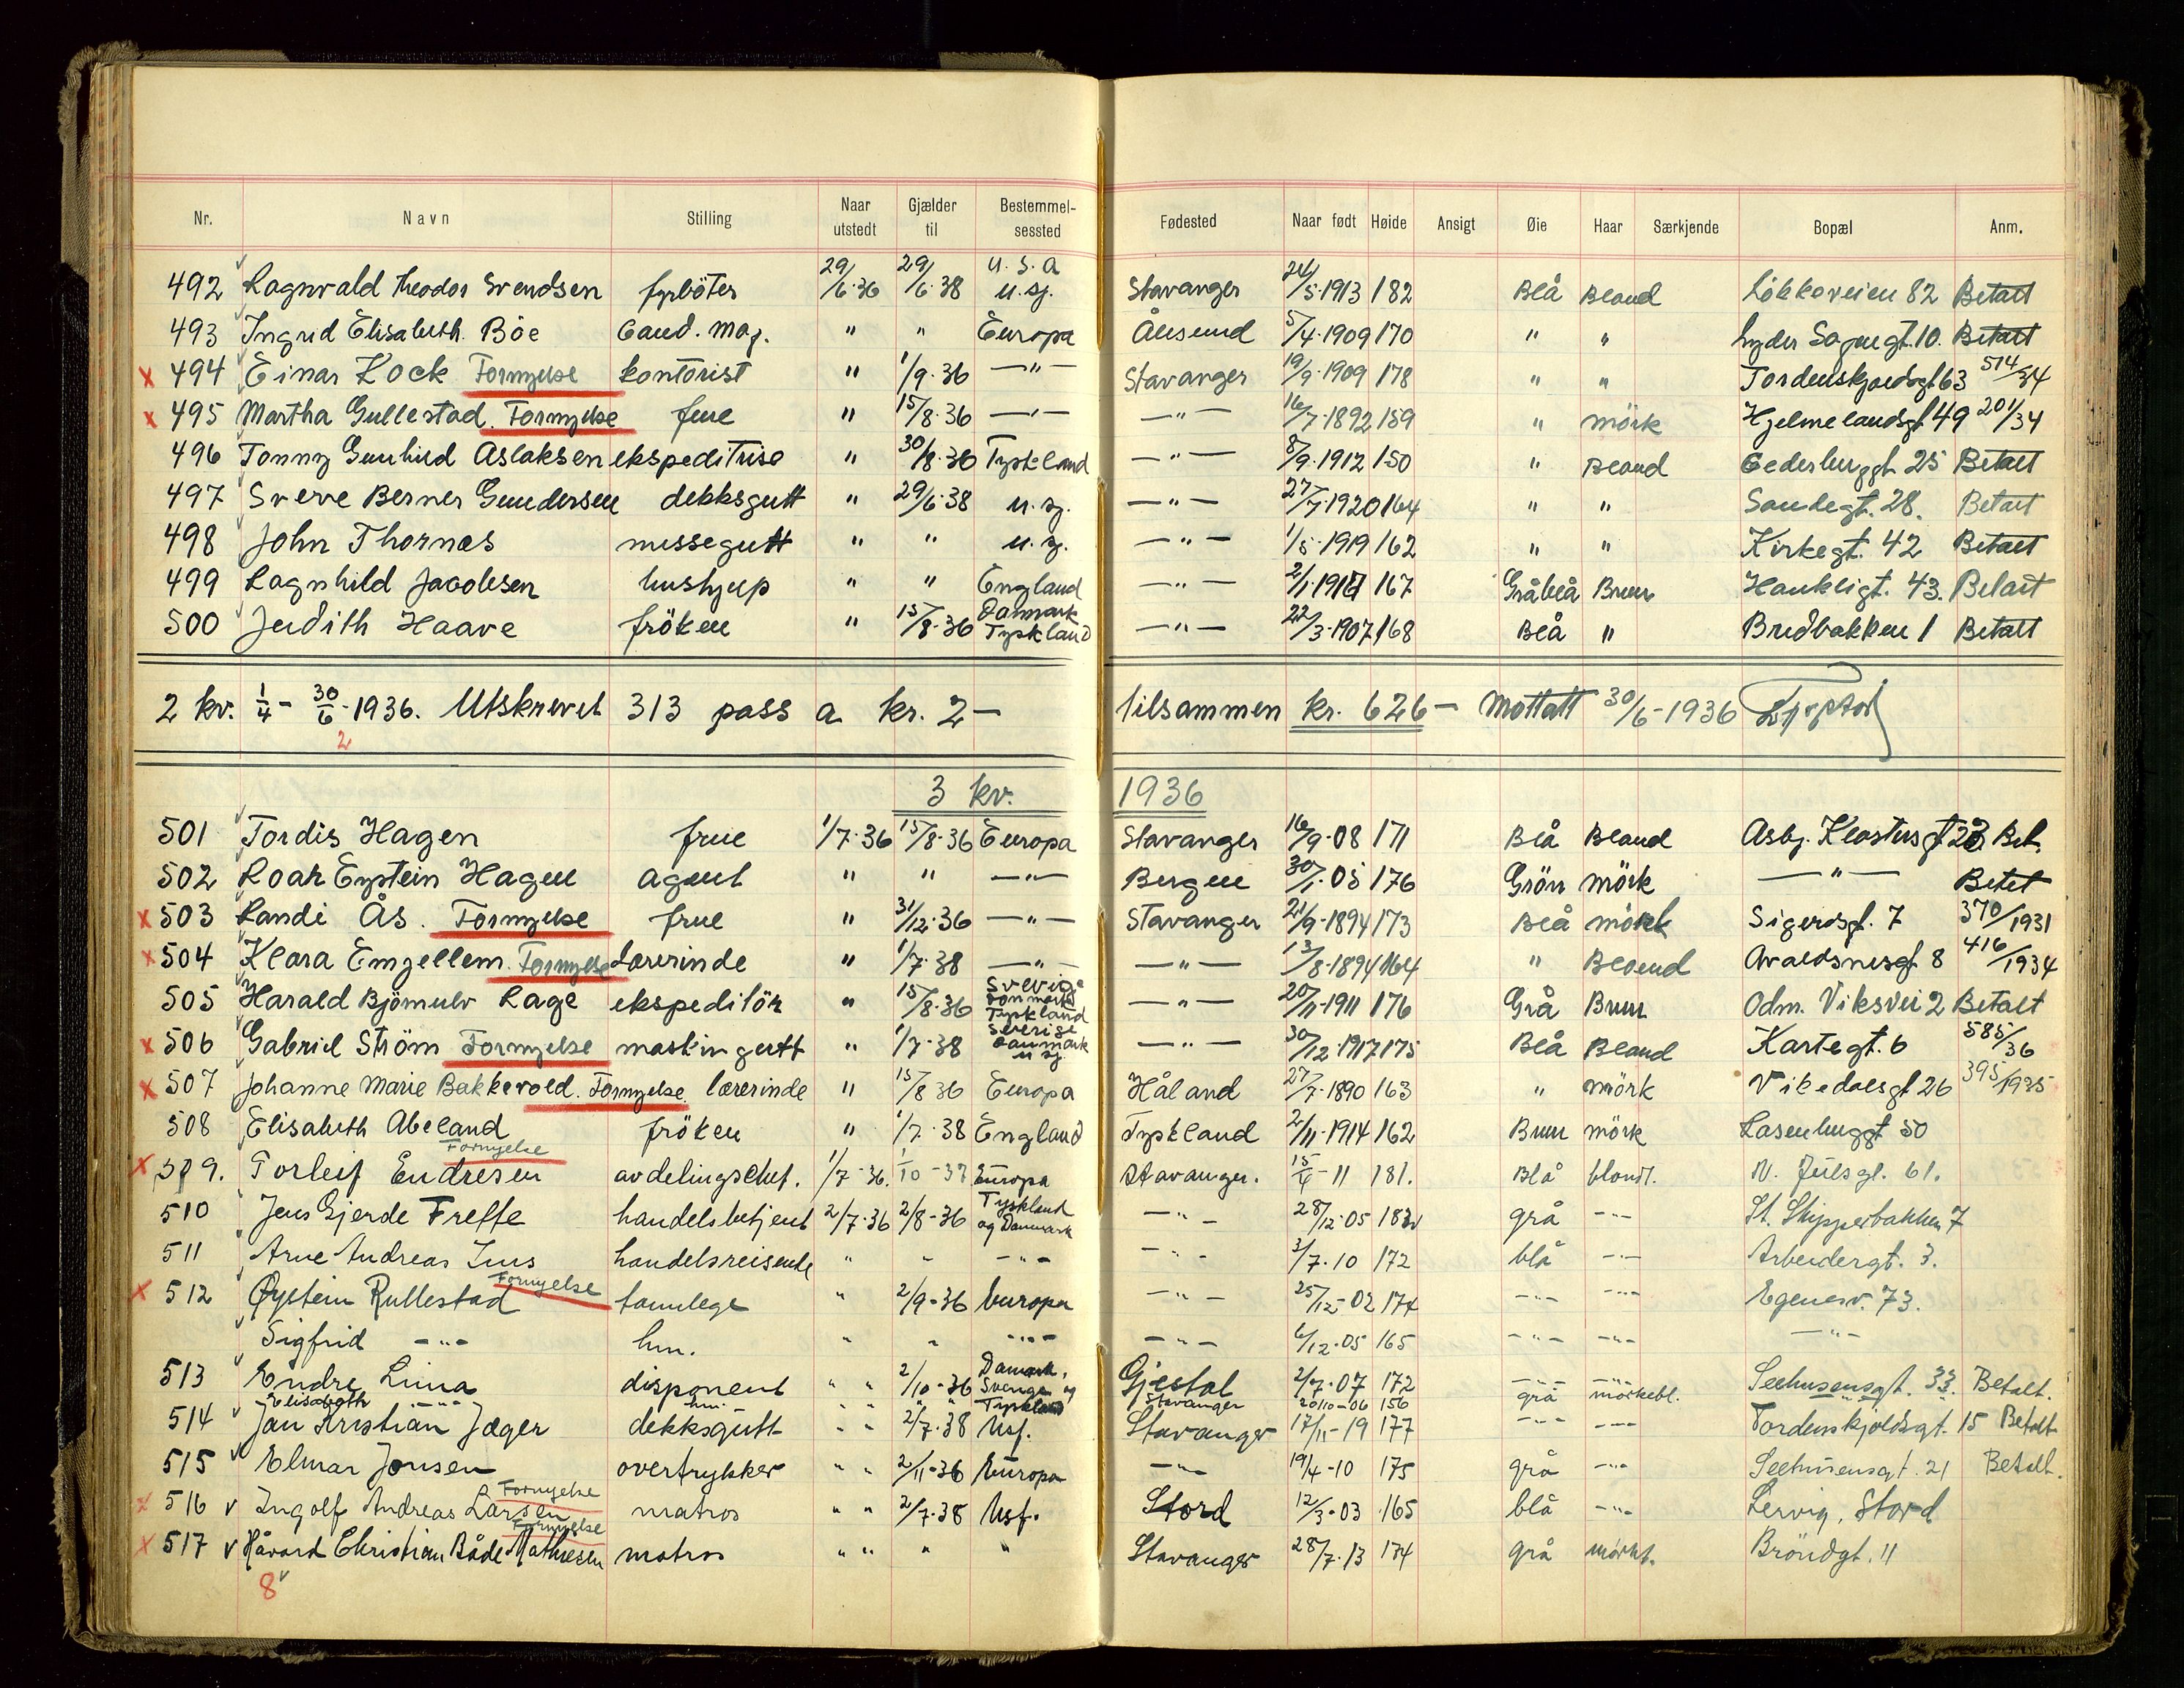 Nr. Navn Stilling Naar utstedt Gjælder til Bestemmel-sessted Fødested Naar født Høide Ansigt Øie Haar Særkjende Bopæl Anm.
492 Ragnvald Theodor Svendsen fyrböter 29/6·36 29/6·38 U.S.A u.sj. Stavanger 24/5·1913 182 Blå Blond Lökkeveien 82 Betalt
493 Ingrid Elisabeth Böe Cand. mag. " " Europa Ålesund 5/4·1909 170 " " Lyder Sagensgt. 10. Betalt
x 494 Einar Kock Fornyelse kontorist " 1/9·36 —"— Stavanger 19/9·1909 178 " " Tordenskjoldsgt 63 514/34
x 495 Martha Gullestad. Fornyelse frue " 15/8·36 —"— —"— 16/7·1892 159 " mörk Hjelmelandsgt 49 201/34
496 Tonny Gunhild Aslaksen ekspeditrise " 30/8·36 Tyskland —"— 8/9·1912 150 " Blond Cederbergsgt 25 Betalt
497 Sverre Berner Gundersen dekksgutt " 29/6·38 u.sj. —"— 27/7·1920 164 " " Sandegt. 28. Betalt
498 John Thornæs messegutt " " u.sj. —"— 1/5·1919 162 " " Kirkegt. 42 Betalt
499 Ragnhild Jacobsen hushjelp " " England —"— 2/1·1917 167 Gråblå Brun Haukligt. 43. Betalt
500 Judith Haave fröken " 15/8·36 Danmark Tyskland —"— 22/3·1907 168 Blå " Bredbakken 1 Betalt
2 kv. 1/4 - 30/6·1936. Utskrevet 313 pass a kr. 2— tilsammen kr. 626— Mottatt 30/6-1936
2
3 kv. 1936
501 Tordis Hagen frue 1/7·36 15/8·36 Europa Stavanger 16/9·08 171 Blå Blond Asbj. Klostersgt 23 Bet.
502 Roar Eystein Hagen agent " " —"— Bergen 30/1·05 176 Grön mörk —"— Betet
x 503 Randi Ås. Fornyelse frue " 31/12·36 —"— Stavanger 21/9-1894 173 Blå mörk Sigerdsgt. 7 370/1931
x 504 Klara Emgellem. Fornyelse Lærerinde " 1/7·38 —"— —"— 13/8·1894 164 " Blond Avaldsnesgt 8 416/1934
505 Harald Björnulv Rage ekspeditör " 15/8·36 Sverige Danmark Tyskland —"— 20/11·1911 176 Grå Brun Odm. Viksvei 2 Betalt
x 506 Gabriel Ström Fornyelse maskingutt " 1/7·38 Sverige Danmark u sj. —"— 30/12·1917 175 Blå Blond Kartegt. 6 585/36
x 507 Johanne Marie Bakkevold. Fornyelse. lærerinde " 15/8 36 Europa Håland 27/7·1890 163 " mörk Vikedalsgt 26 395/1935
508 Elisabeth Abeland fröken " 1/7·38 England Tyskland 2/11·1914 162 Brun mörk Rosenberggt 50
x 509. Torleif Endresen Fornyelse avdelingschef. 1/7·36. 1/10-37 Europa Stavanger. 15/4-11 181. Blå blondt. N. Julsgt. 61.
510 Jens Gjerde Freffe handelsbetjent 2/7·36 2/8-36 Tyskland og Danmark —"— 28/12·05 183 grå —"— St. Skipperbakken 7
511 Arne Andreas handelsreisende " " —"— —"— 3/7·10 172 blå —"— Arbeidergt. 3.
x 512 Øystein Rullestad Fornyelse tannlege " 2/9-36 Europa —"— 25/12-02 174 —"— —"— Egenesv. 73.
Sigfrid —"— hm. " " —"— —"— 6/12·05 165 —"— —"— —"—
513 Endre Lima disponent " " 2/10-36 Danmark, Sverige og Tyskland Gjestal 2/7·07 172 —"— —"— Seehusensgt. 33. Betalt.
Elisabeth —"— hm. " " Stavanger 20/10-06 156 grå mörkebl.
514 Jan Kristian Jæger dekksgutt " " 2/7·38 Usj. Stavanger 17/11-19 177 —"— —"— Tordenskjoldsgt. 15 Betalt
515 Elmar Jonsen overtrykker " " 2/11-36 Europa —"— 19/4-10 175 grå —"— Seehusensgt. 21 Betalt.
x 516 v Ingolf Andreas Larsen Fornyelse matros " " 2/7·38 Usj. Stord 12/3·03 165 blå —"— Lervig, Stord
x 517 v Håvard Christian Både Mathiesen Fornyelse matros " " " " Stavanger 28/7·13 174 grå mörkt. Bröndgt. 11
8